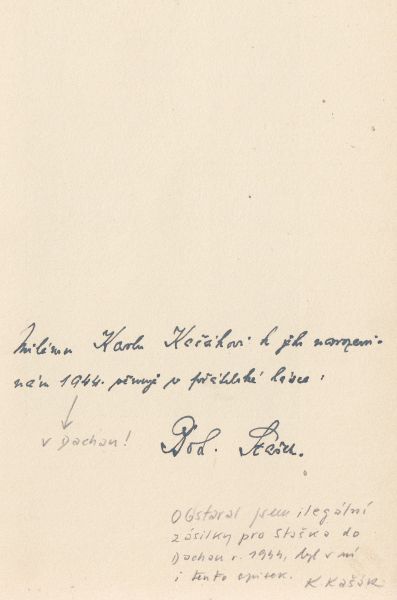 Milému Karlu Kašákovi k jeho narozeni-
nám 1944. věnuji v přátelské lásce:
Boh. Stašek.
v Dachau!
Obstaral jsem ilegální
zásilky pro Staška do
Dachau r. 1944, byl v ní
i tento spisek.
K Kašák